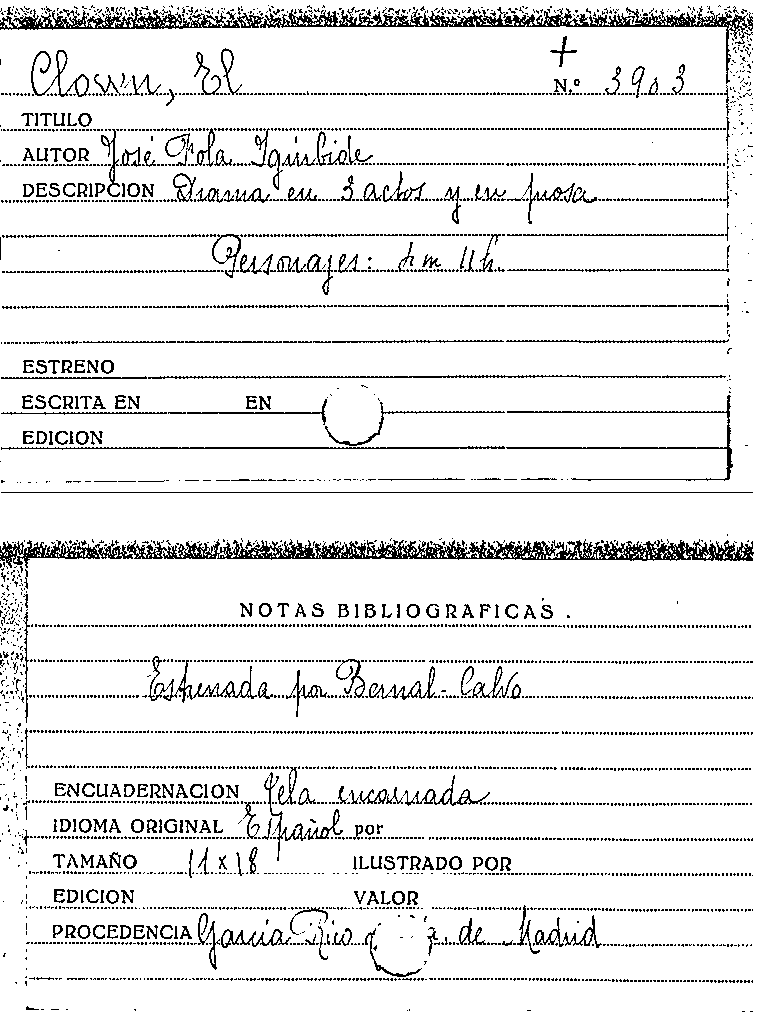 Clown, El
N.º 3903
TITULO
AUTOR José Fola Igúrbide
DESCRIPCION Drama en 3 actos y en prosa
Personajes: 4 m 11 h.
ESTRENO
ESCRITA EN EN
EDICION
NOTAS BIBLIOGRAFICAS.
Estrenada por Bernal-Calvo
ENCUADERNACION Tela encarnada
IDIOMA ORIGINAL Español por
TAMAÑO 11 x 18 ILUSTRADO POR
EDICION VALOR
PROCEDENCIA García Rico de Madrid